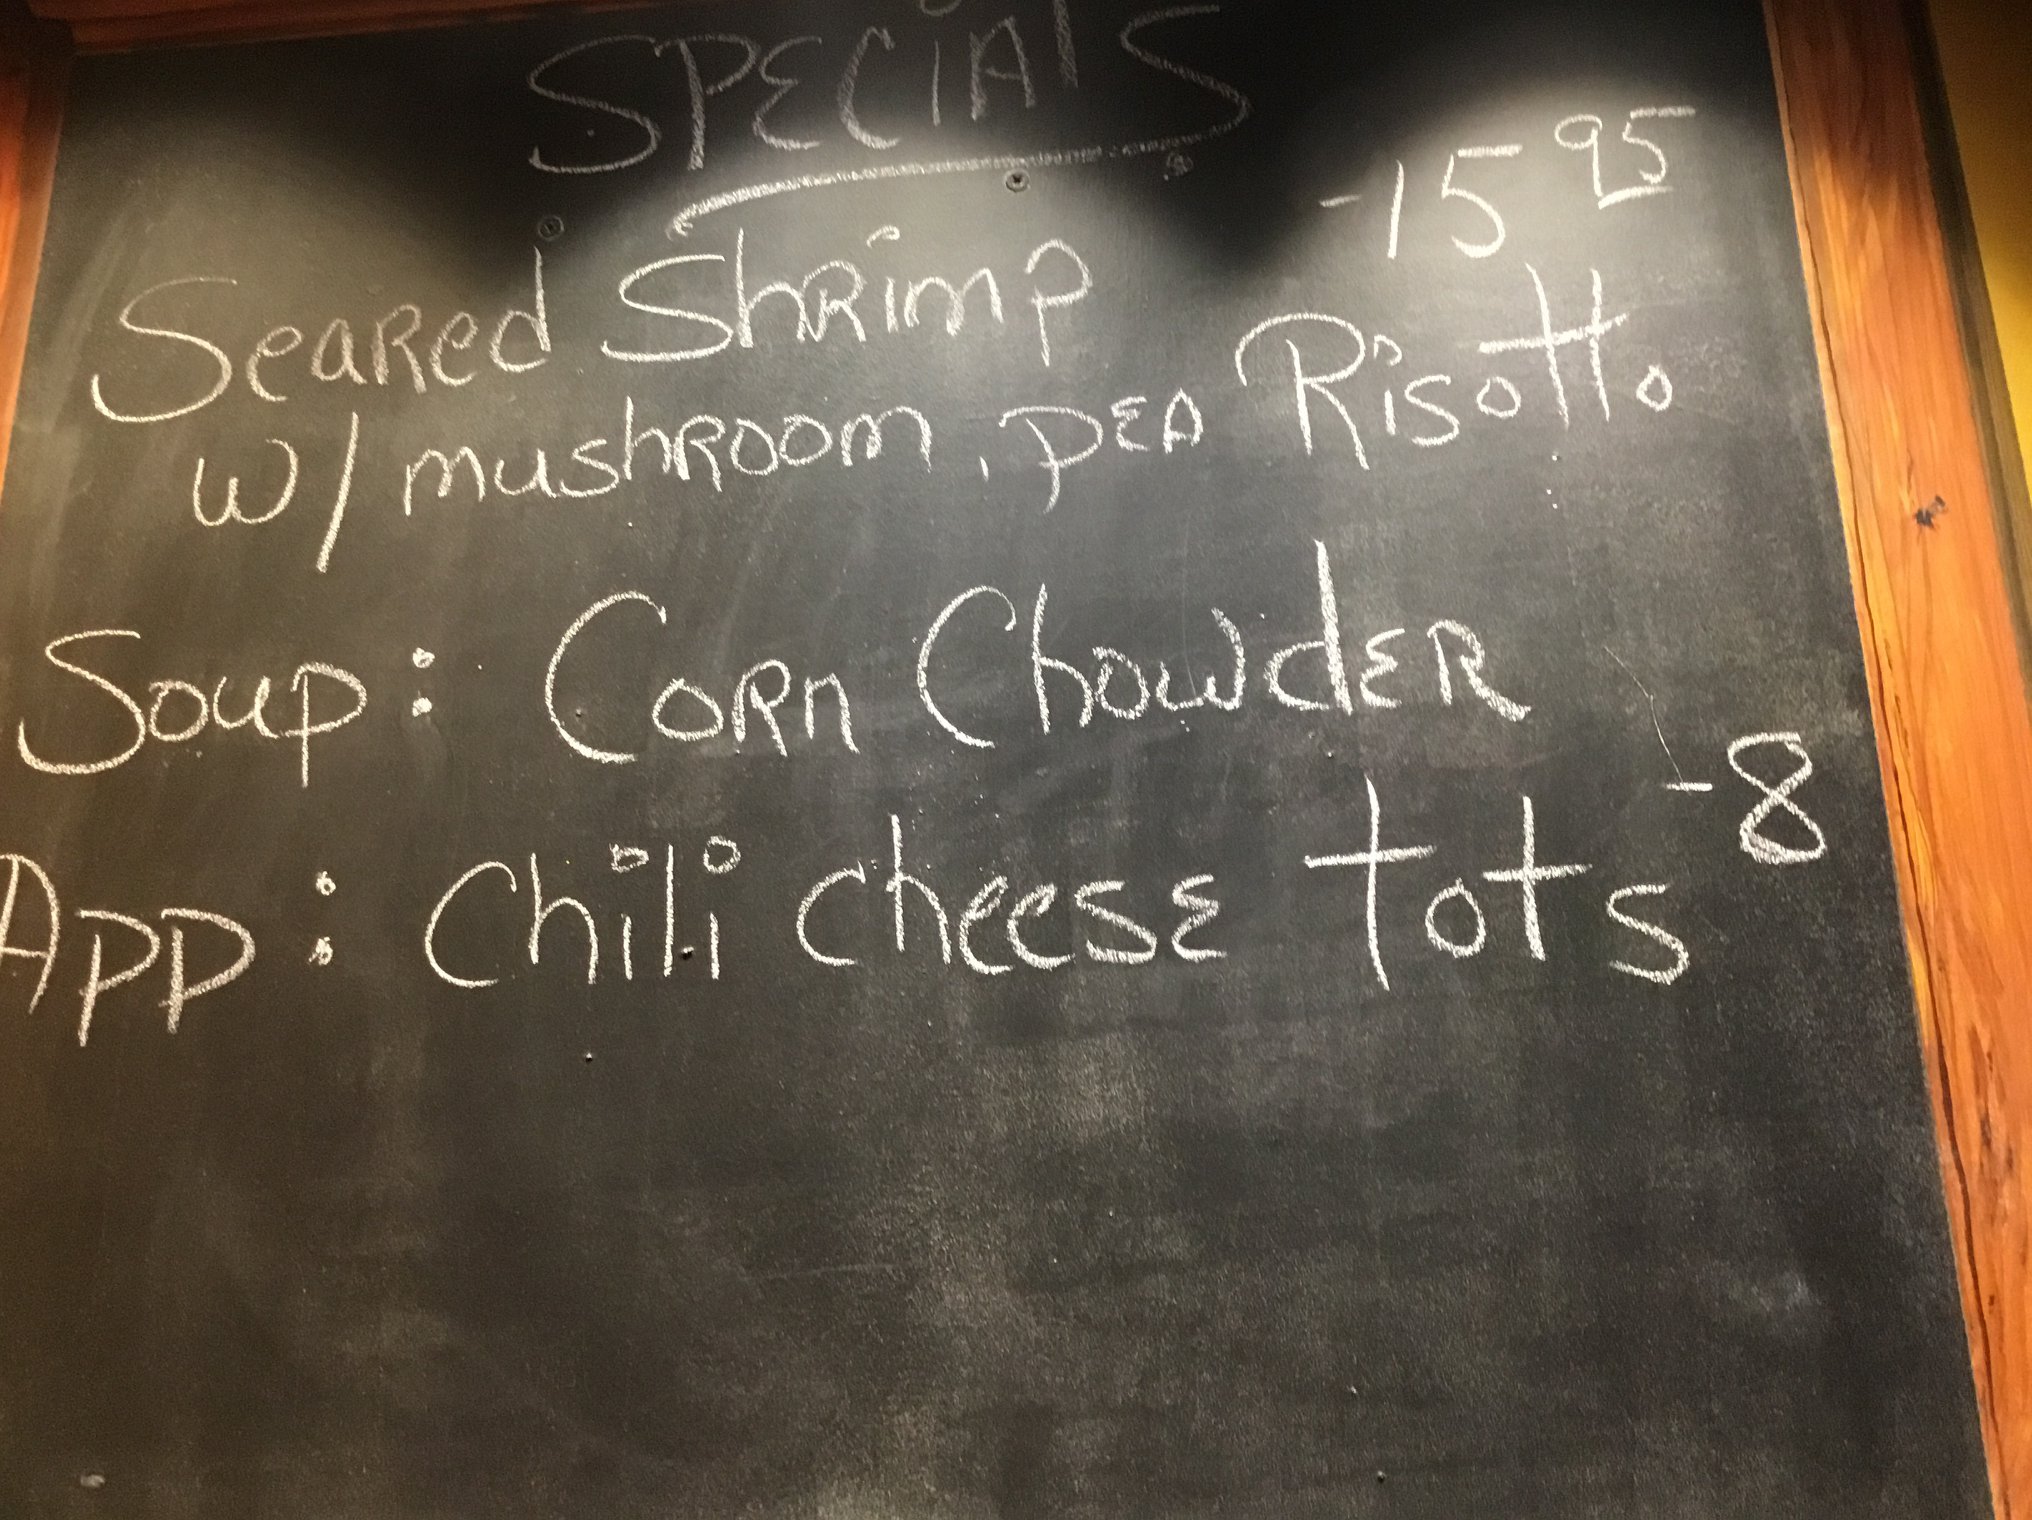 SPECIALS
Seared Shrimp -15 95
w/ mushroom, pea Risotto
Soup: Corn Chowder
App: Chili cheese tots -8